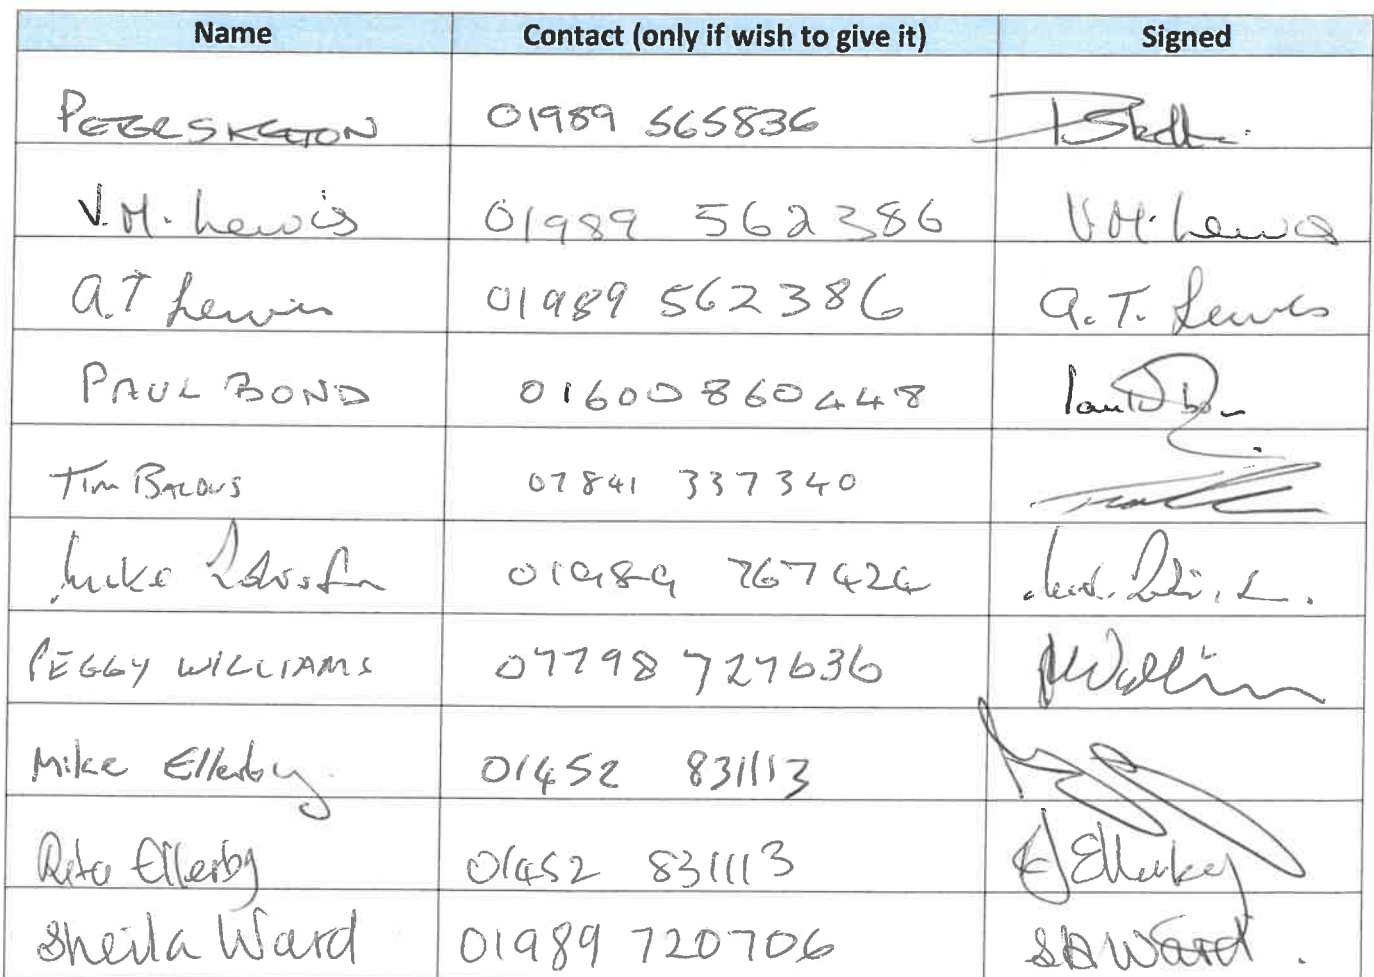 Name Contact (only if wish to give it) Signed
PETER SKELTON 01989 565836
V.M. Lewis 01989 562386 V.M. Lewis
A.T Lewis 01989 562386 A.T. Lewis
PAUL BOND 01600 860448
Tim 07841 337340
Mike 01989 767424
PEGGY WILLIAMS 07798 727636
Mike Ellerby 01452 831113
Rita Ellerby 01452 831113 Ellerby
Sheila Ward 01989 720706 S A Ward.